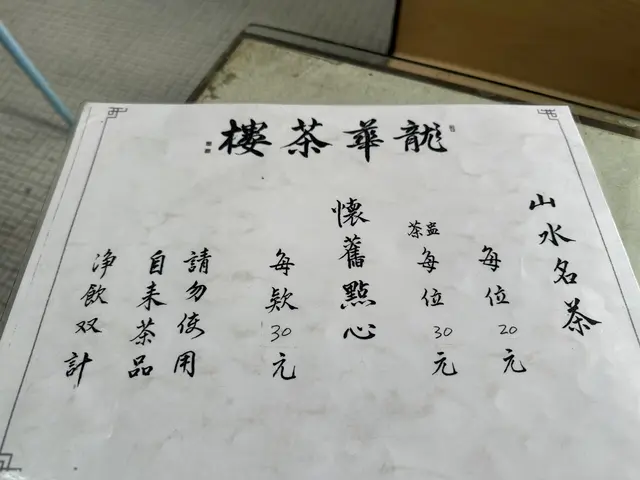 龍華茶樓
山水名茶
每位20元
茶盅每位30元
懷舊點心
每欵30元
請勿使用
自来茶品
淨飲双計